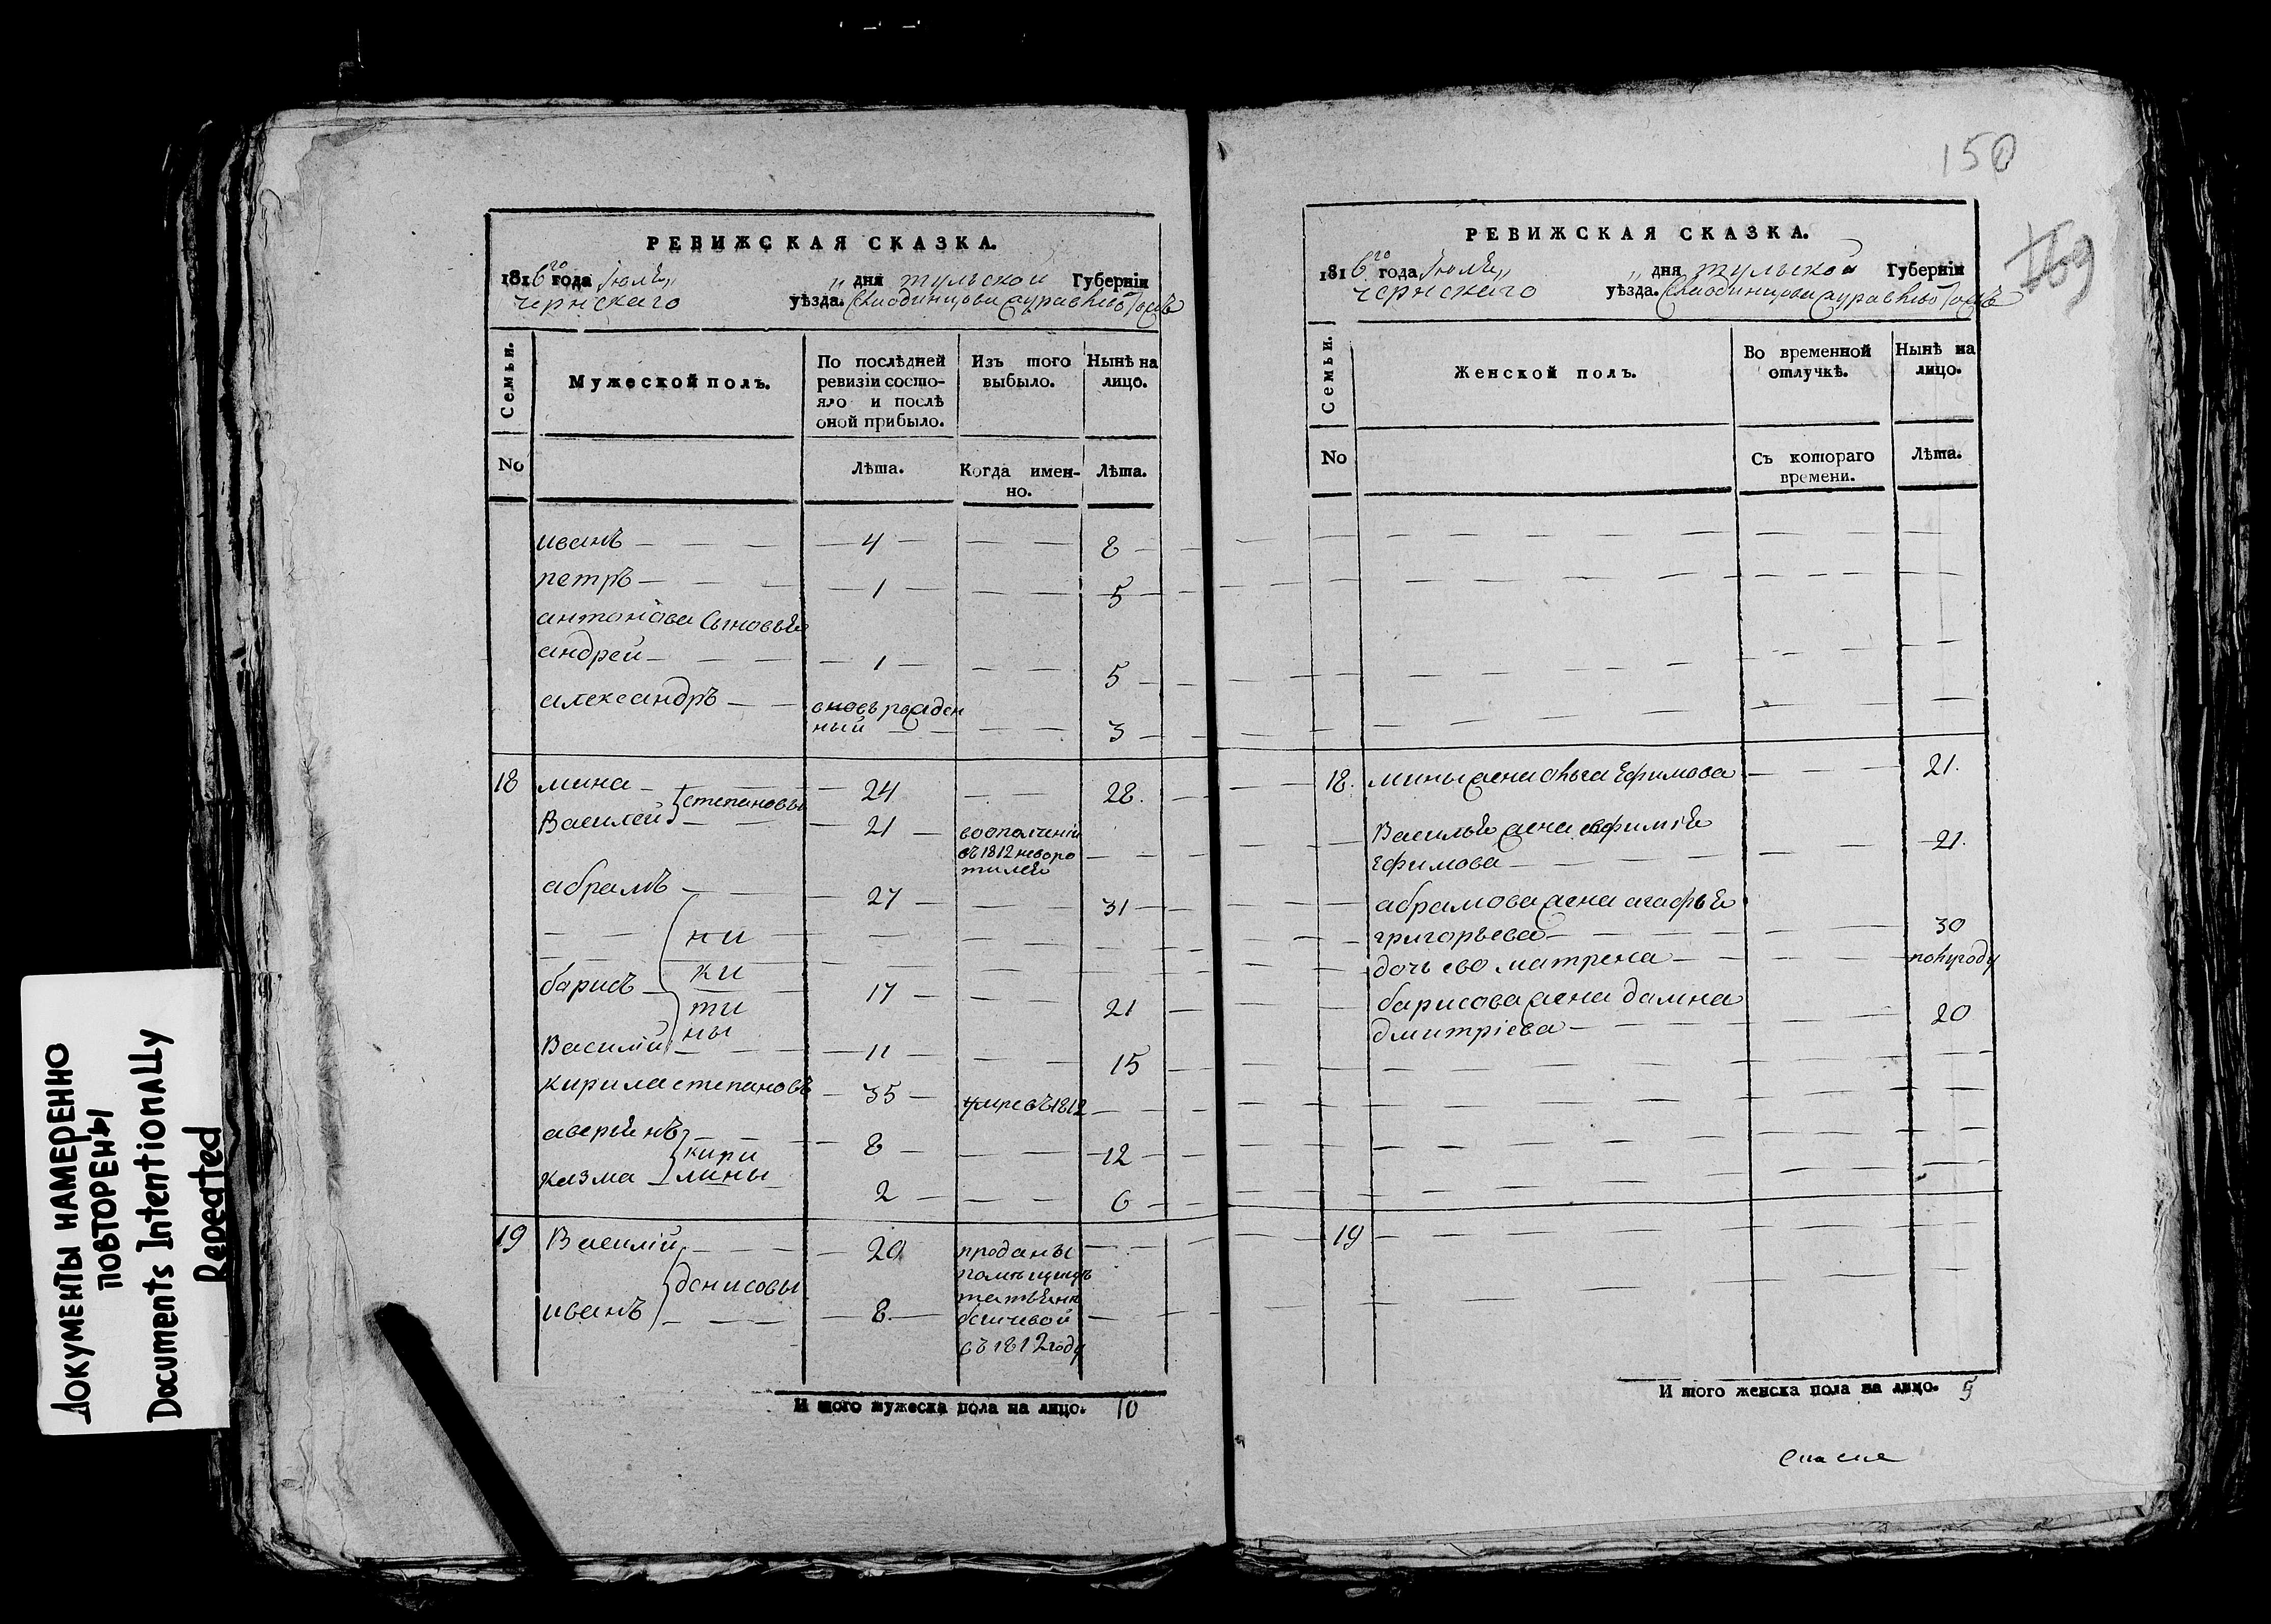 150
169
РЕВИЖСКАЯ СКАЗКА.
1816го года Июля „ дня тульской Губерніи
чернскаго уѣзда.
Семьи.
Мужеской полъ.
По послѣдней ревизіи состо-
яло и послѣ оной прибыло.
Изъ того выбыло.
Нынѣ на лицо.
No
Лѣта.
Когда имен-
но.
Лѣта.
иванъ 4 8
петръ 1 5
антонова сыновья
андрей 1 5
александръ вновь рожден
ный 3
18 мина 24 28.
степановы
Василей 21 воополчени
въ 1812 неворо
тился
абрамъ 27 31
ни
ки
барисъ 17 21
ти
ны
Василій 11 15
кирила степановъ 35 умре въ 1812
аверьянъ 8 12
кири
лины
казма 2 6
19 Василій 20 проданы
помѣщицѣ
денисовы
татьяне
иванъ 8
въ 1812 году
И того мужеска пола на лицо. 10
РЕВИЖСКАЯ СКАЗКА.
1816го года Июля „ дня тульской Губерніи
чернскаго уѣзда.
Семьи.
Женской полъ.
Во временной
отлучкѣ.
Нынѣ на
лицо.
No
Съ котораго
времени.
Лѣта.
18. мины жена ольга Ефимова 21.
Василья жена евфимія
Ефимова 21.
абрамова жена агафья
григорьева 30
дочь ево матрена полугоду
барисова жена домна
дмитріева 20
19
И того женска пола на лицо. 5
ДОКУМЕНТЫ НАМЕРЕННО
ПОВТОРЕНЫ
Documents Intentionally
Repeated